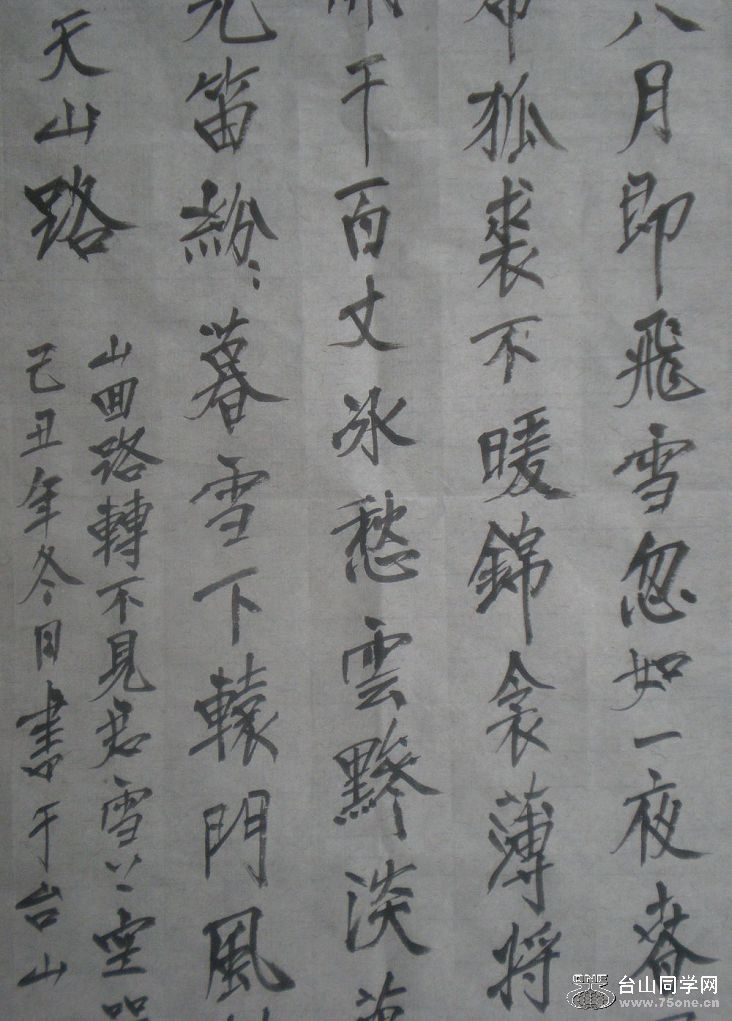 八月即飛雪忽如一夜春
狐裘不暖錦衾薄將
干百丈冰愁雲黲淡萬
羌笛紛紛暮雪下轅門風
天山路
山囬路轉不見君雪上空
己丑年冬月書于台山
台山同学网
www.75one.cn